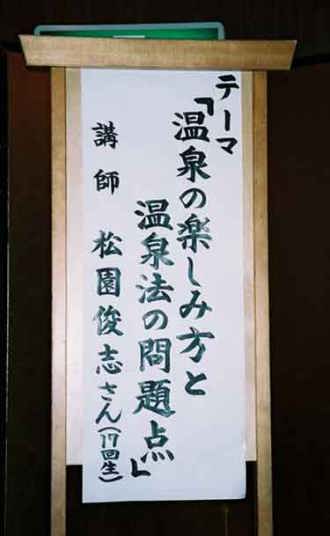 テーマ
「温泉の楽しみ方と
温泉法の問題点」
講師 松園俊志さん(17回生)